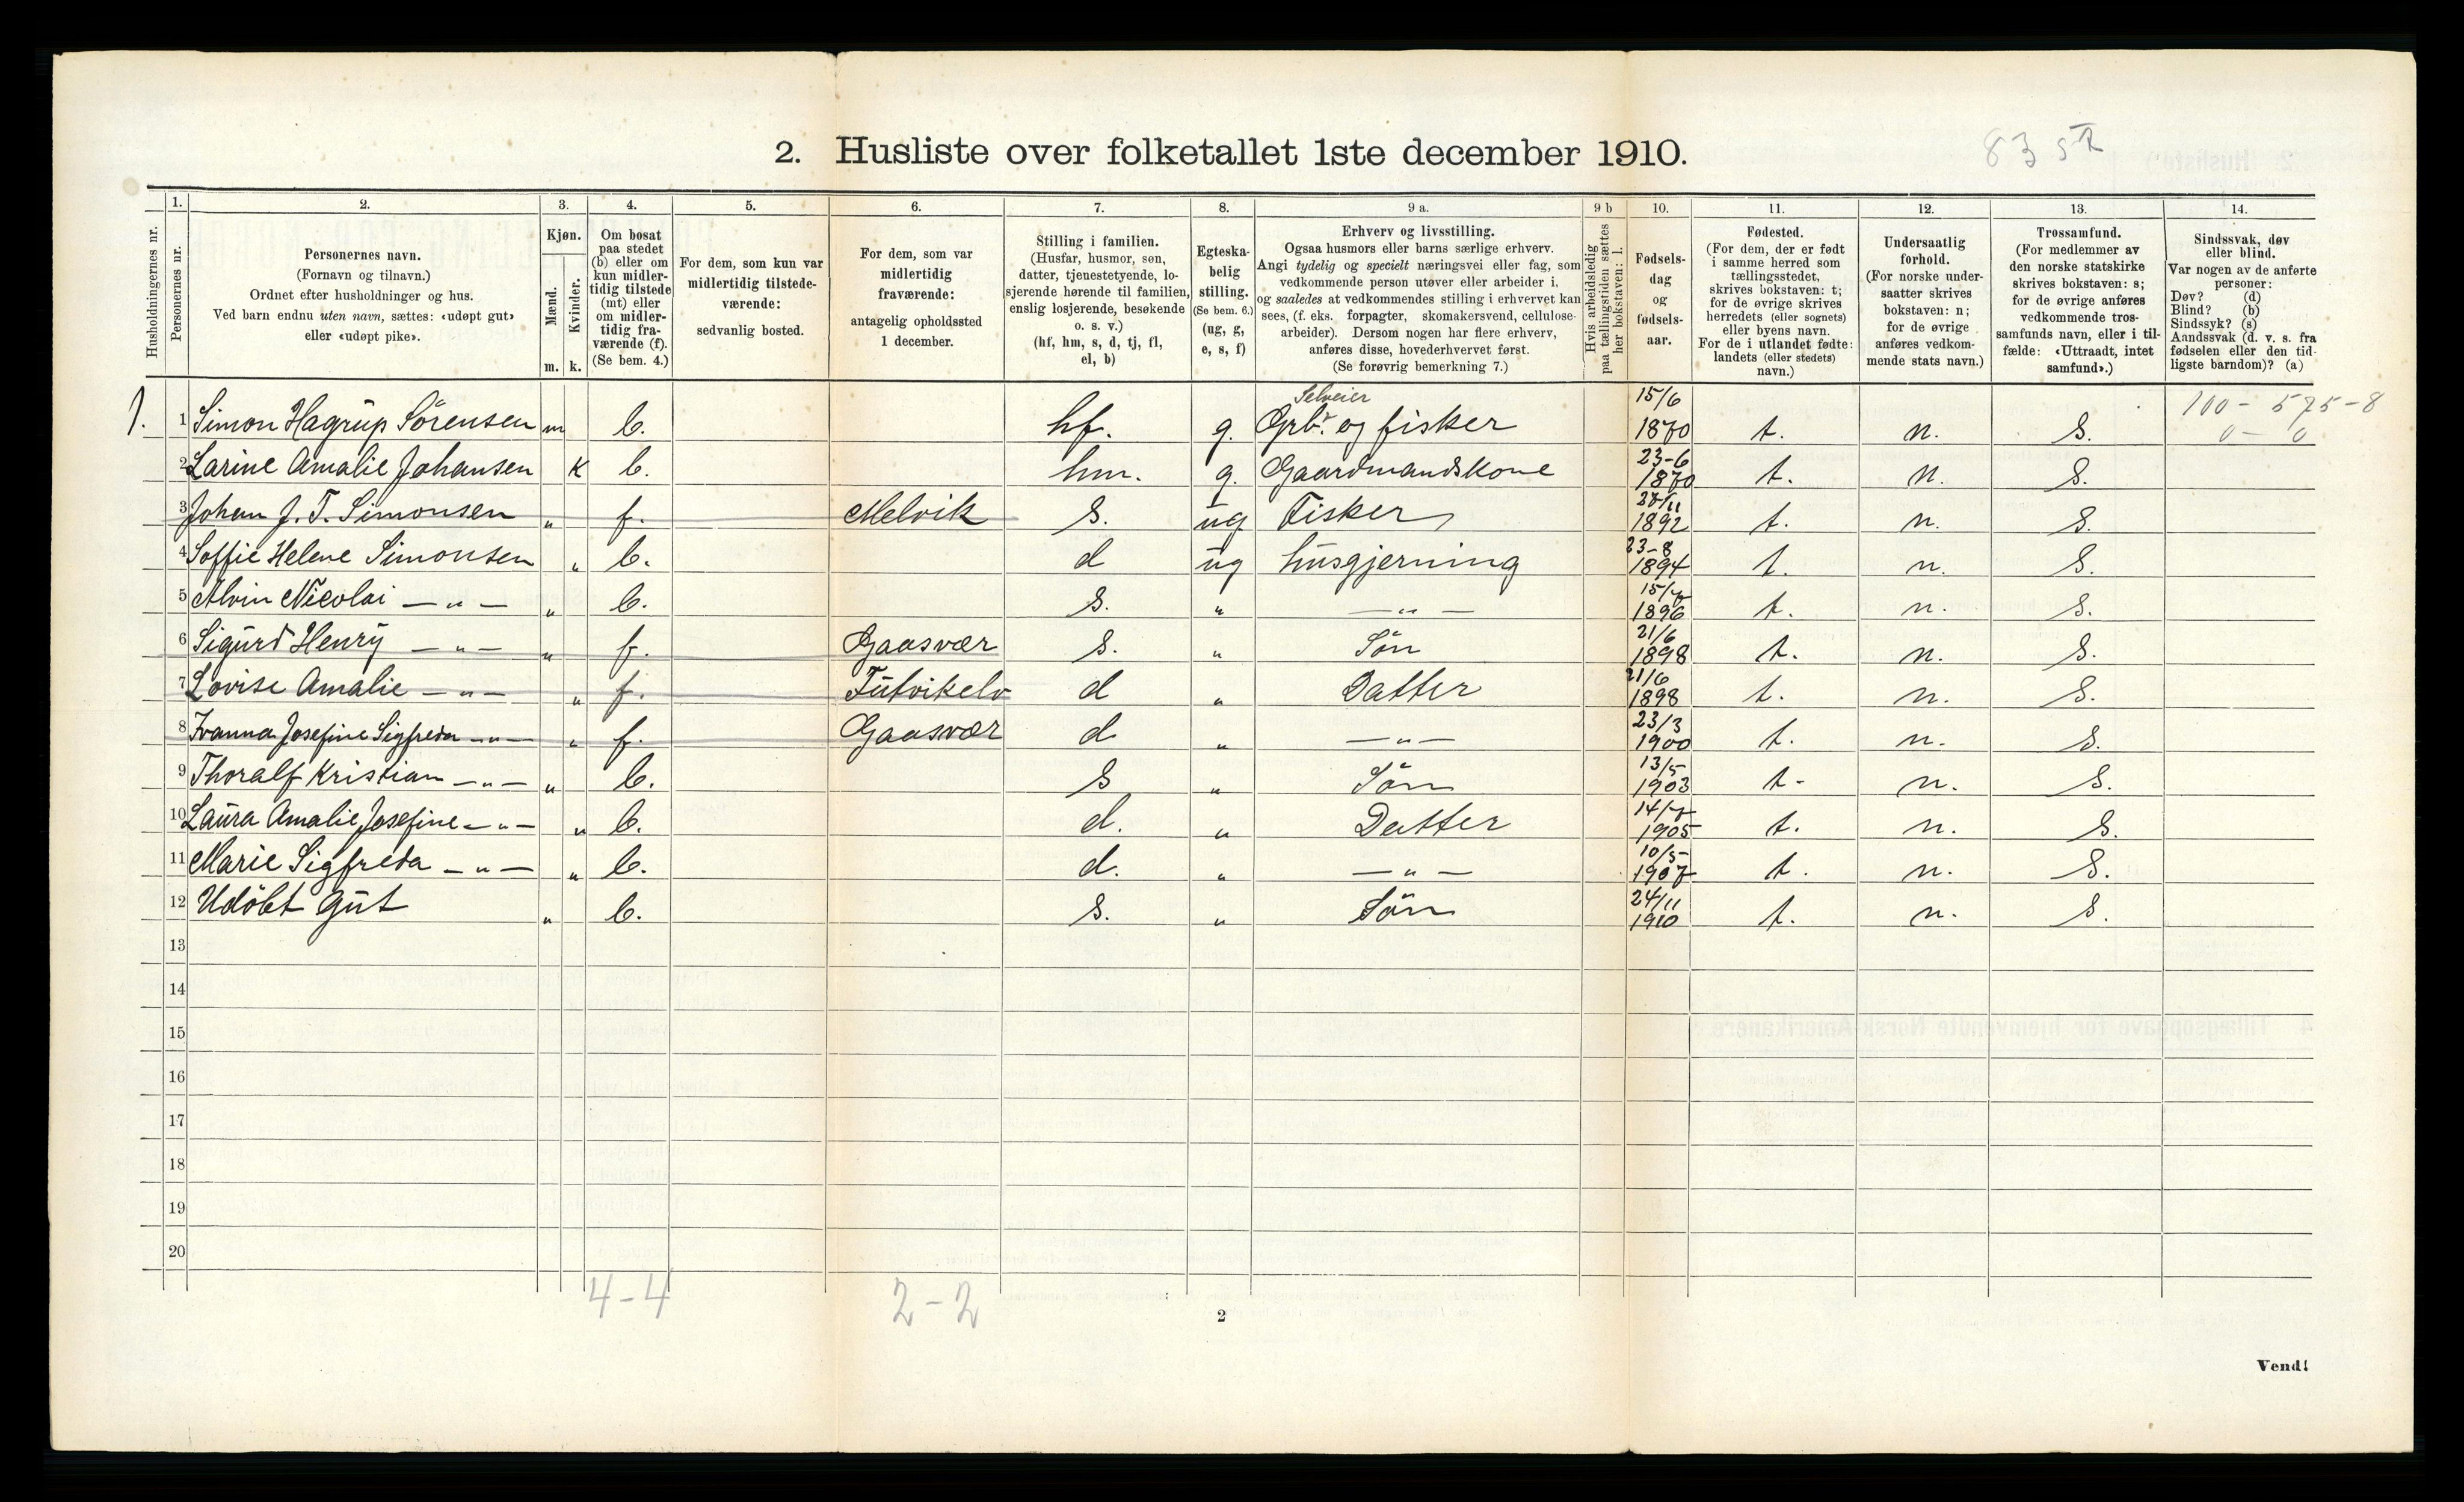 2. Husliste over folketallet 1ste december 1910.
83 st
1. 2. 3. 4. 5. 6. 7. 8. 9 a. 9 b 10. 11. 12. 13. 14.
Husholdningernes nr.
Personernes nr.
Personernes navn.
(Fornavn og tilnavn.)
Ordnet efter husholdninger og hus.
Ved barn endnu uten navn, sættes: «udøpt gut»
eller «udøpt pike».
Kjøn.
Mænd.
Kvinder.
m. k.
Om bosat
paa stedet
(b) eller om
kun midler-
tidig tilstede
(mt) eller
om midler-
tidig fra-
værende (f).
(Se bem. 4.)
For dem, som kun var
midlertidig tilstede-
værende:
sedvanlig bosted.
For dem, som var
midlertidig
fraværende:
antagelig opholdssted
1 december.
Stilling i familien.
(Husfar, husmor, søn,
datter, tjenestetyende, lo-
sjerende hørende til familien,
enslig losjerende, besøkende
o. s. v.)
(hf, hm, s, d, tj, fl,
el, b)
Egteska-
belig
stilling.
(Se bem. 6.)
(ug, g,
e, s, f)
Erhverv og livsstilling.
Ogsaa husmors eller barns særlige erhverv.
Angi tydelig og specielt næringsvei eller fag, som
vedkommende person utøver eller arbeider i,
og saaledes at vedkommendes stilling i erhvervet kan
sees, (f. eks. forpagter, skomakersvend, cellulose-
arbeider). Dersom nogen har flere erhverv,
anføres disse, hovederhvervet først.
(Se forøvrig bemerkning 7.)
Hvis arbeidsledig
paa tællingstiden sættes
her bokstaven: l.
Fødsels-
dag
og
fødsels-
aar.
Fødested.
(For dem, der er født
i samme herred som
tællingsstedet,
skrives bokstaven: t;
for de øvrige skrives
herredets (eller sognets)
eller byens navn.
For de i utlandet fødte:
landets (eller stedets)
navn.)
Undersaatlig
forhold.
(For norske under-
saatter skrives
bokstaven: n;
for de øvrige
anføres vedkom-
mende stats navn.)
Trossamfund.
(For medlemmer av
den norske statskirke
skrives bokstaven: s;
for de øvrige anføres
vedkommende tros-
samfunds navn, eller i til-
fælde: «Uttraadt, intet
samfund».)
Sindssvak, døv
eller blind.
Var nogen av de anførte
personer:
Døv? (d)
Blind? (b)
Sindssyk? (s)
Aandssvak (d. v. s. fra
fødselen eller den tid-
ligste barndom)? (a)
1. 1 Simon Hagrup Sörensen m b. hf. g. Selveier Grbr. og fisker 15/6 1870 t. n. S. 100 - 575-8 0 - 0
2 Larine Amalie Johansen K b. hm. g. Gaardmandskone 23-6 1870 t. n. S.
3 Johan J. T. Simonsen " f. Melvik S. ug Fisker 27/11 1892 t. n. S.
4 Soffie Helene Simonsen " b. d ug husgjerning 23-8 1894 t. n. S.
5 Alvin Nicolai — " — " b. S. " — " — 15/7 1896 t. n. S.
6 Sigurd Henry — " — " f. Gaasvær S. " Sön 21/6 1898 t. n. S.
7 Lovise Amalie — " — " f. Futvikelv d " Datter 21/6 1898 t. n. S.
8 Ivanna Josefine Sigfreda — " — " f. Gaasvær d " — " — 23/3 1900 t. n. S.
9 Thoralf Kristian — " — " b. S " Sön 13/5 1903 t- n. S.
10 Laura Amalie Josefine — " — " b. d. " Datter 14/7 1905 t. n. S.
11 Marie Sigfreda — " — " b. d. " — " — 10/5 1907 t. n. S.
12 Udöbt Gut " b. S. " Sön 24/11 1910 t. n. S.
13
14
15
16
17
18
19
20
4-4 2-2
2
Vend!